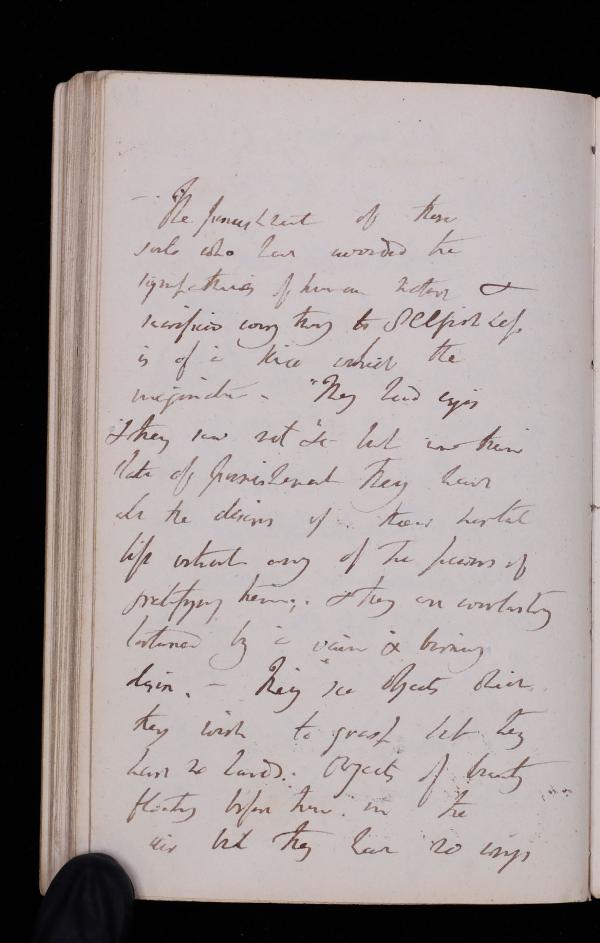 - The punishment of those
souls who have avoided the
sympathies of human nature &
sacrificed every thing to Selfish Self
is of a kind which the
imagination - "They had eyes
& they saw not" &c but in their
state of punishment they have
all the desires of their mortal
life without any of the powers of
gratifying them, & they are everlasting
tortured by a vain & burning
desire. - They see objects which
they wish to grasp but they
have no hands. Objects of beauty
floating before them in the
air but they have no wings